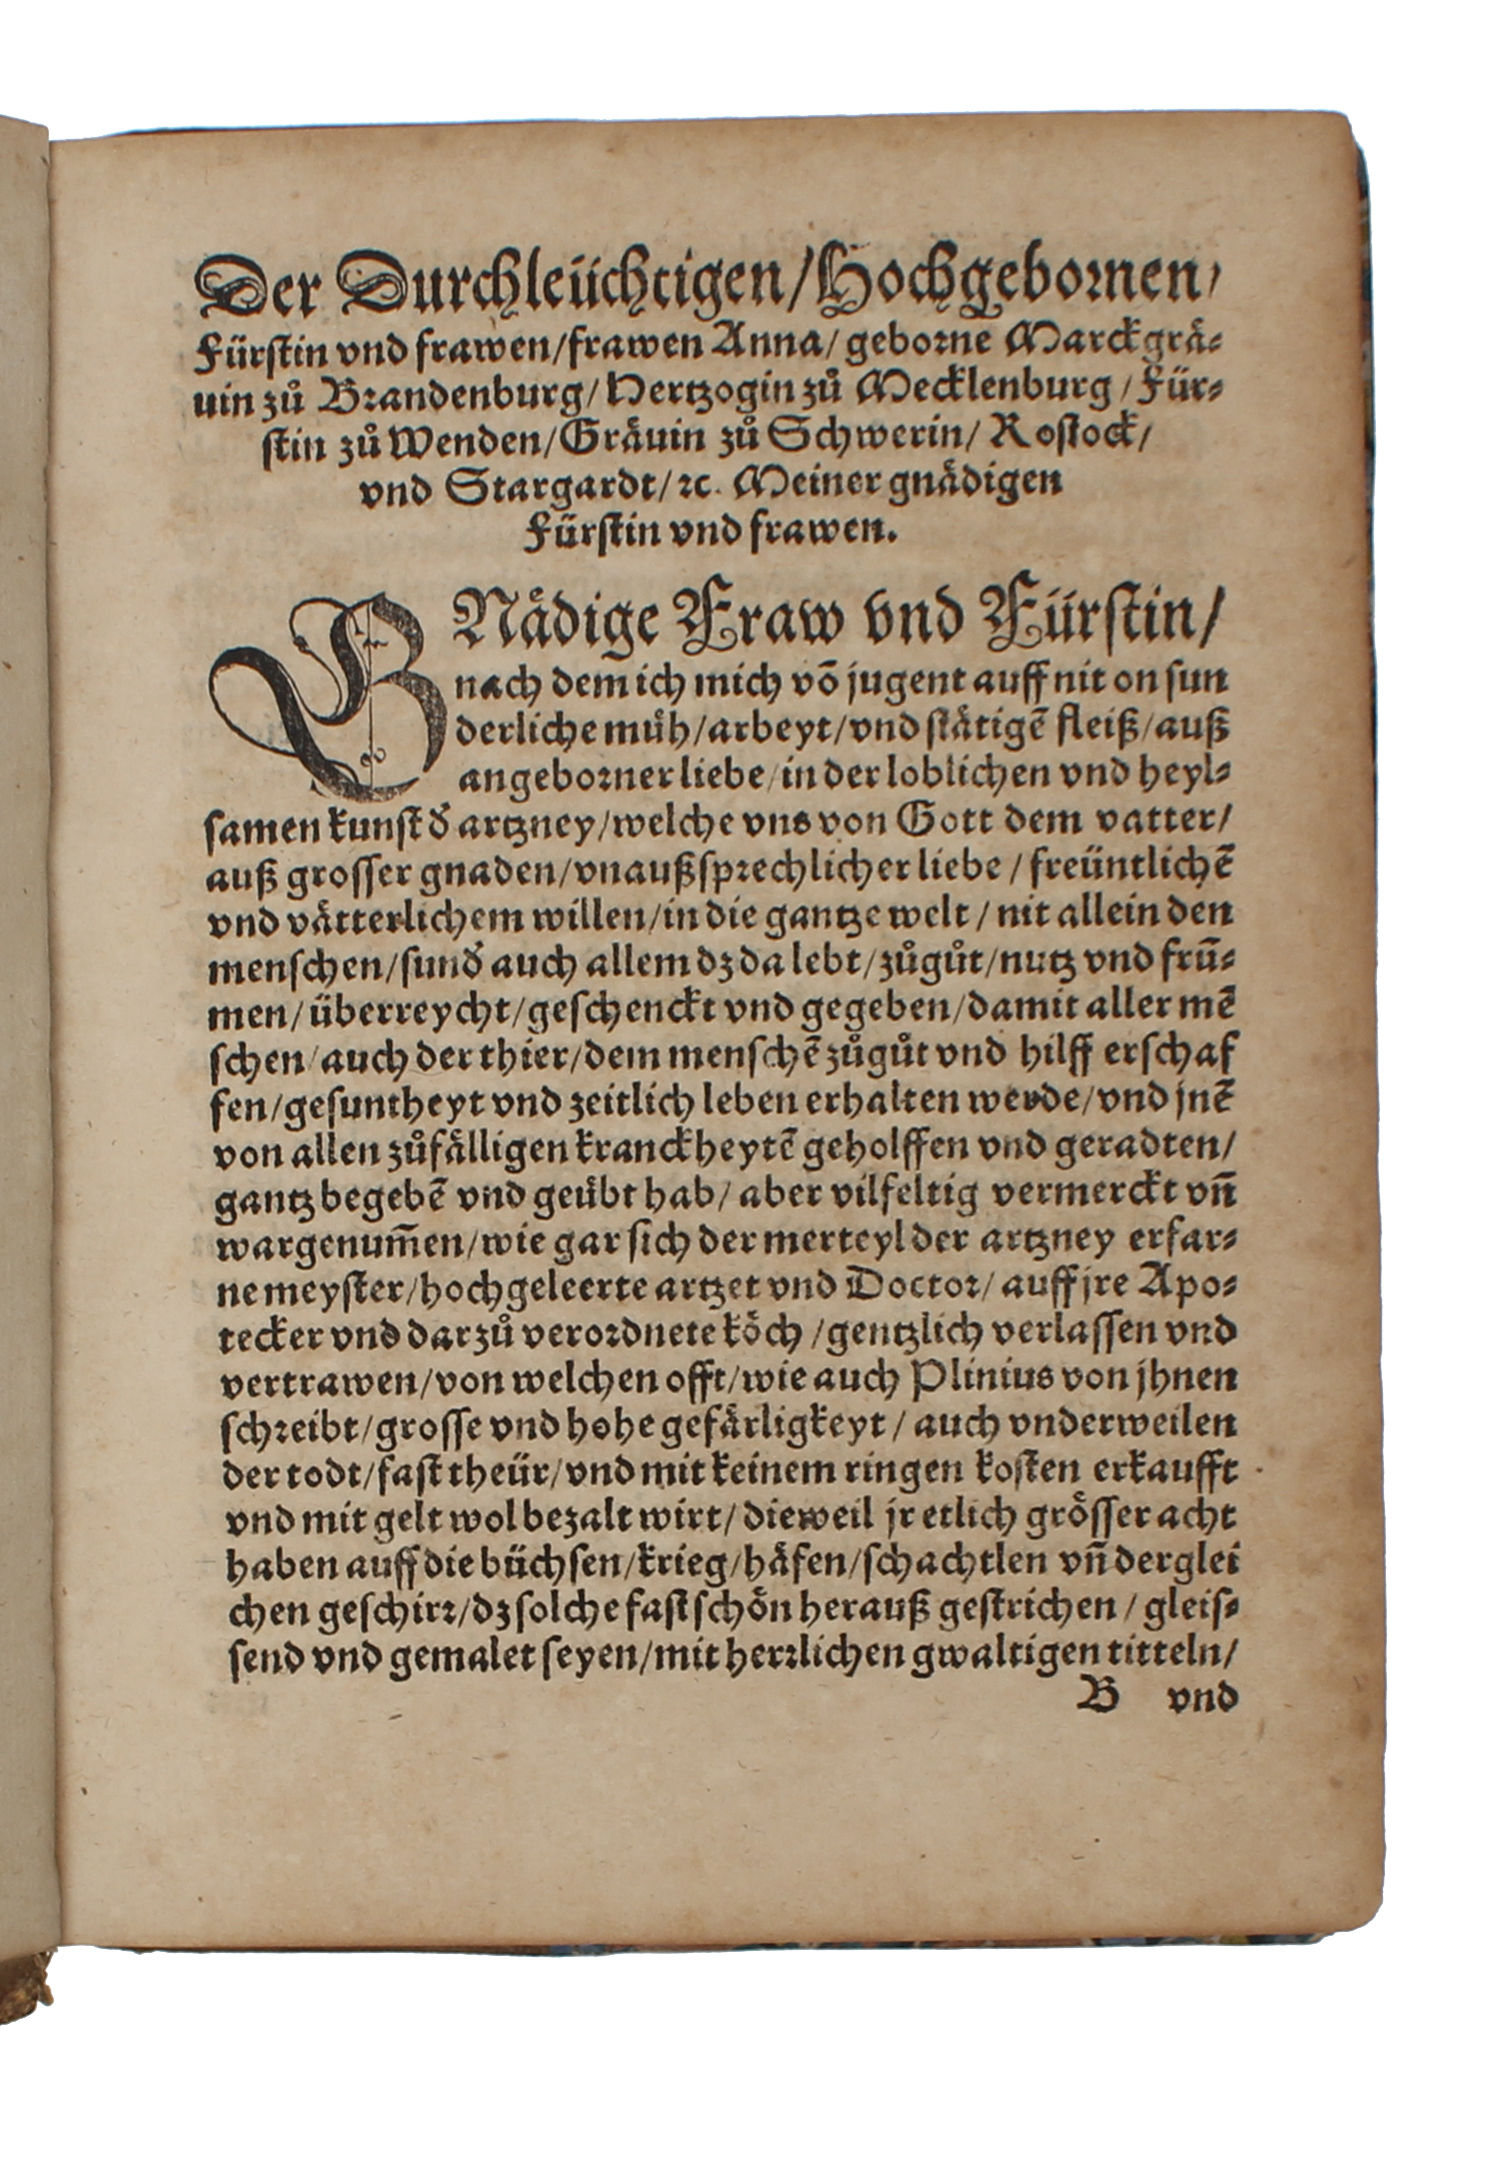 Der Durchleüchtigen/Hochgebornen/
Fürstin vnd frawen/frawen Anna/ geborne Marckgrä⸗
uin zů Brandenburg/ Hertzogin zů Mecklenburg / Für⸗
stin zů Wenden/Gräuin zů Schwerin/ Rostock/
vnd Stargardt/ ꝛc. Meiner gnädigen
Fürstin vnd frawen.
GNädige Fraw vnd Fürstin/
nach dem ich mich võ jugent auff nit on sun
derliche müh/arbeyt/vnd stätigẽ fleiß/auß
angeborner liebe/in der loblichen vnd heyl⸗
samen kunst ď artzney/welche vns von Gott dem vatter/
auß grosser gnaden/vnaußsprechlicher liebe / freüntlichẽ
vnd vätterlichem willen/in die gantze welt / nit allein den
menschen/sunď auch allem dz da lebt/zůgůt/nutz vnd frũ⸗
men/überreycht/geschenckt vnd gegeben/damit aller mẽ
schen/auch der thier/dem menschẽ zůgůt vnd hilff erschaf
fen/gesuntheyt vnd zeitlich leben erhalten werde/vnd jnẽ
von allen zůfälligen kranckheytẽ geholffen vnd geradten/
gantz begebẽ vnd geübt hab/ aber vilfeltig vermerckt vñ
wargenum̃en/wie gar sich der merteyl der artzney erfar⸗
ne meyster/hochgeleerte artzet vnd Doctor/ auff jre Apo⸗
tecker vnd darzů verordnete köch /gentzlich verlassen vnd
vertrawen/von welchen offt/wie auch Plinius von jhnen
schreibt/grosse vnd hohe gefärligkeyt / auch vnderweilen
der todt/fast theür/vnd mit keinem ringen kosten erkaufft
vnd mit gelt wol bezalt wirt/ dieweil jr etlich grösser acht
haben auff die büchsen/krieg/häfen/schachtlen vñ derglei
chen geschirr/dz solche fast schön herauß gestrichen / gleis⸗
send vnd gemalet seyen/mit herrlichen gwaltigen titteln/
B vnd